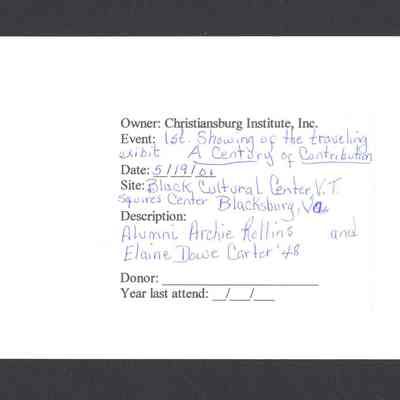 Owner: Christiansburg Institute, Inc.
Event: 1st. Showing of the traveling
exibit A Century of Contribution
Date: 5/19/01
Site: Black Cultural Center, V.T.
Squires Center Blacksburg, Va.
Description:
Alumni Archie Rollins and
Elaine Dowe Carter '48
Donor:
Year last attend: __/__/__